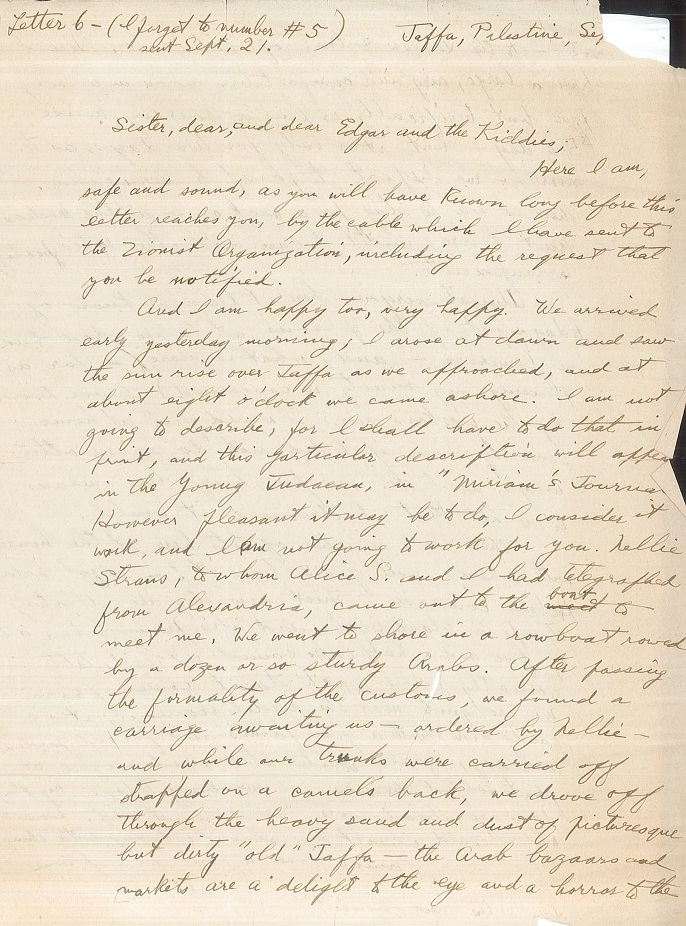 Letter 6 – (I forget to number #5)
sent Sept. 21.
Jaffa, Palestine, Se
Sister, dear, and dear Edgar and the Kiddies;
Here I am,
safe and sound, as you will have known long before this
letter reaches you, by the cable which I have sent to
the Zionist Organization, including the request that
you be notified.
And I am happy too, very happy. We arrived
early yesterday morning; I arose at dawn and saw
the sun rise over Jaffa as we approached, and at
about eight o'clock we came ashore. I am not
going to describe, for I shall have to do that in
print, and this particular description will appea
in the Young Judaean, in "Miriam's Journa
However pleasant it may be to do, I consider it
work, and I am not going to work for you. Nellie
Straus, to whom Alice S. and I had telegraphed
from Alexandria, came out to the boat to
meet me. We went to shore in a rowboat rowed
by a dozen or so sturdy Arabs. After passing
the formality of the customs, we found a
carriage awaiting us – ordered by Nellie –
and while our trunks were carried off
strapped on a camels back, we drove off
through the heavy sand and dust of picturesque
but dirty "old" Jaffa – the Arab bazaars and
markets are a delight to the eye and a horror to the